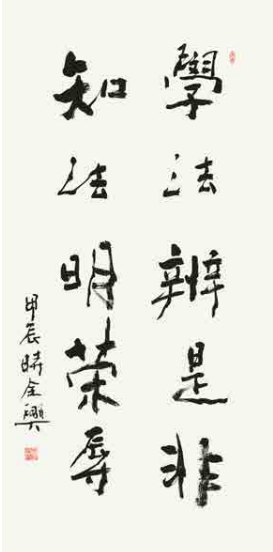 學法辨是非
知法明荣辱
甲辰時金興